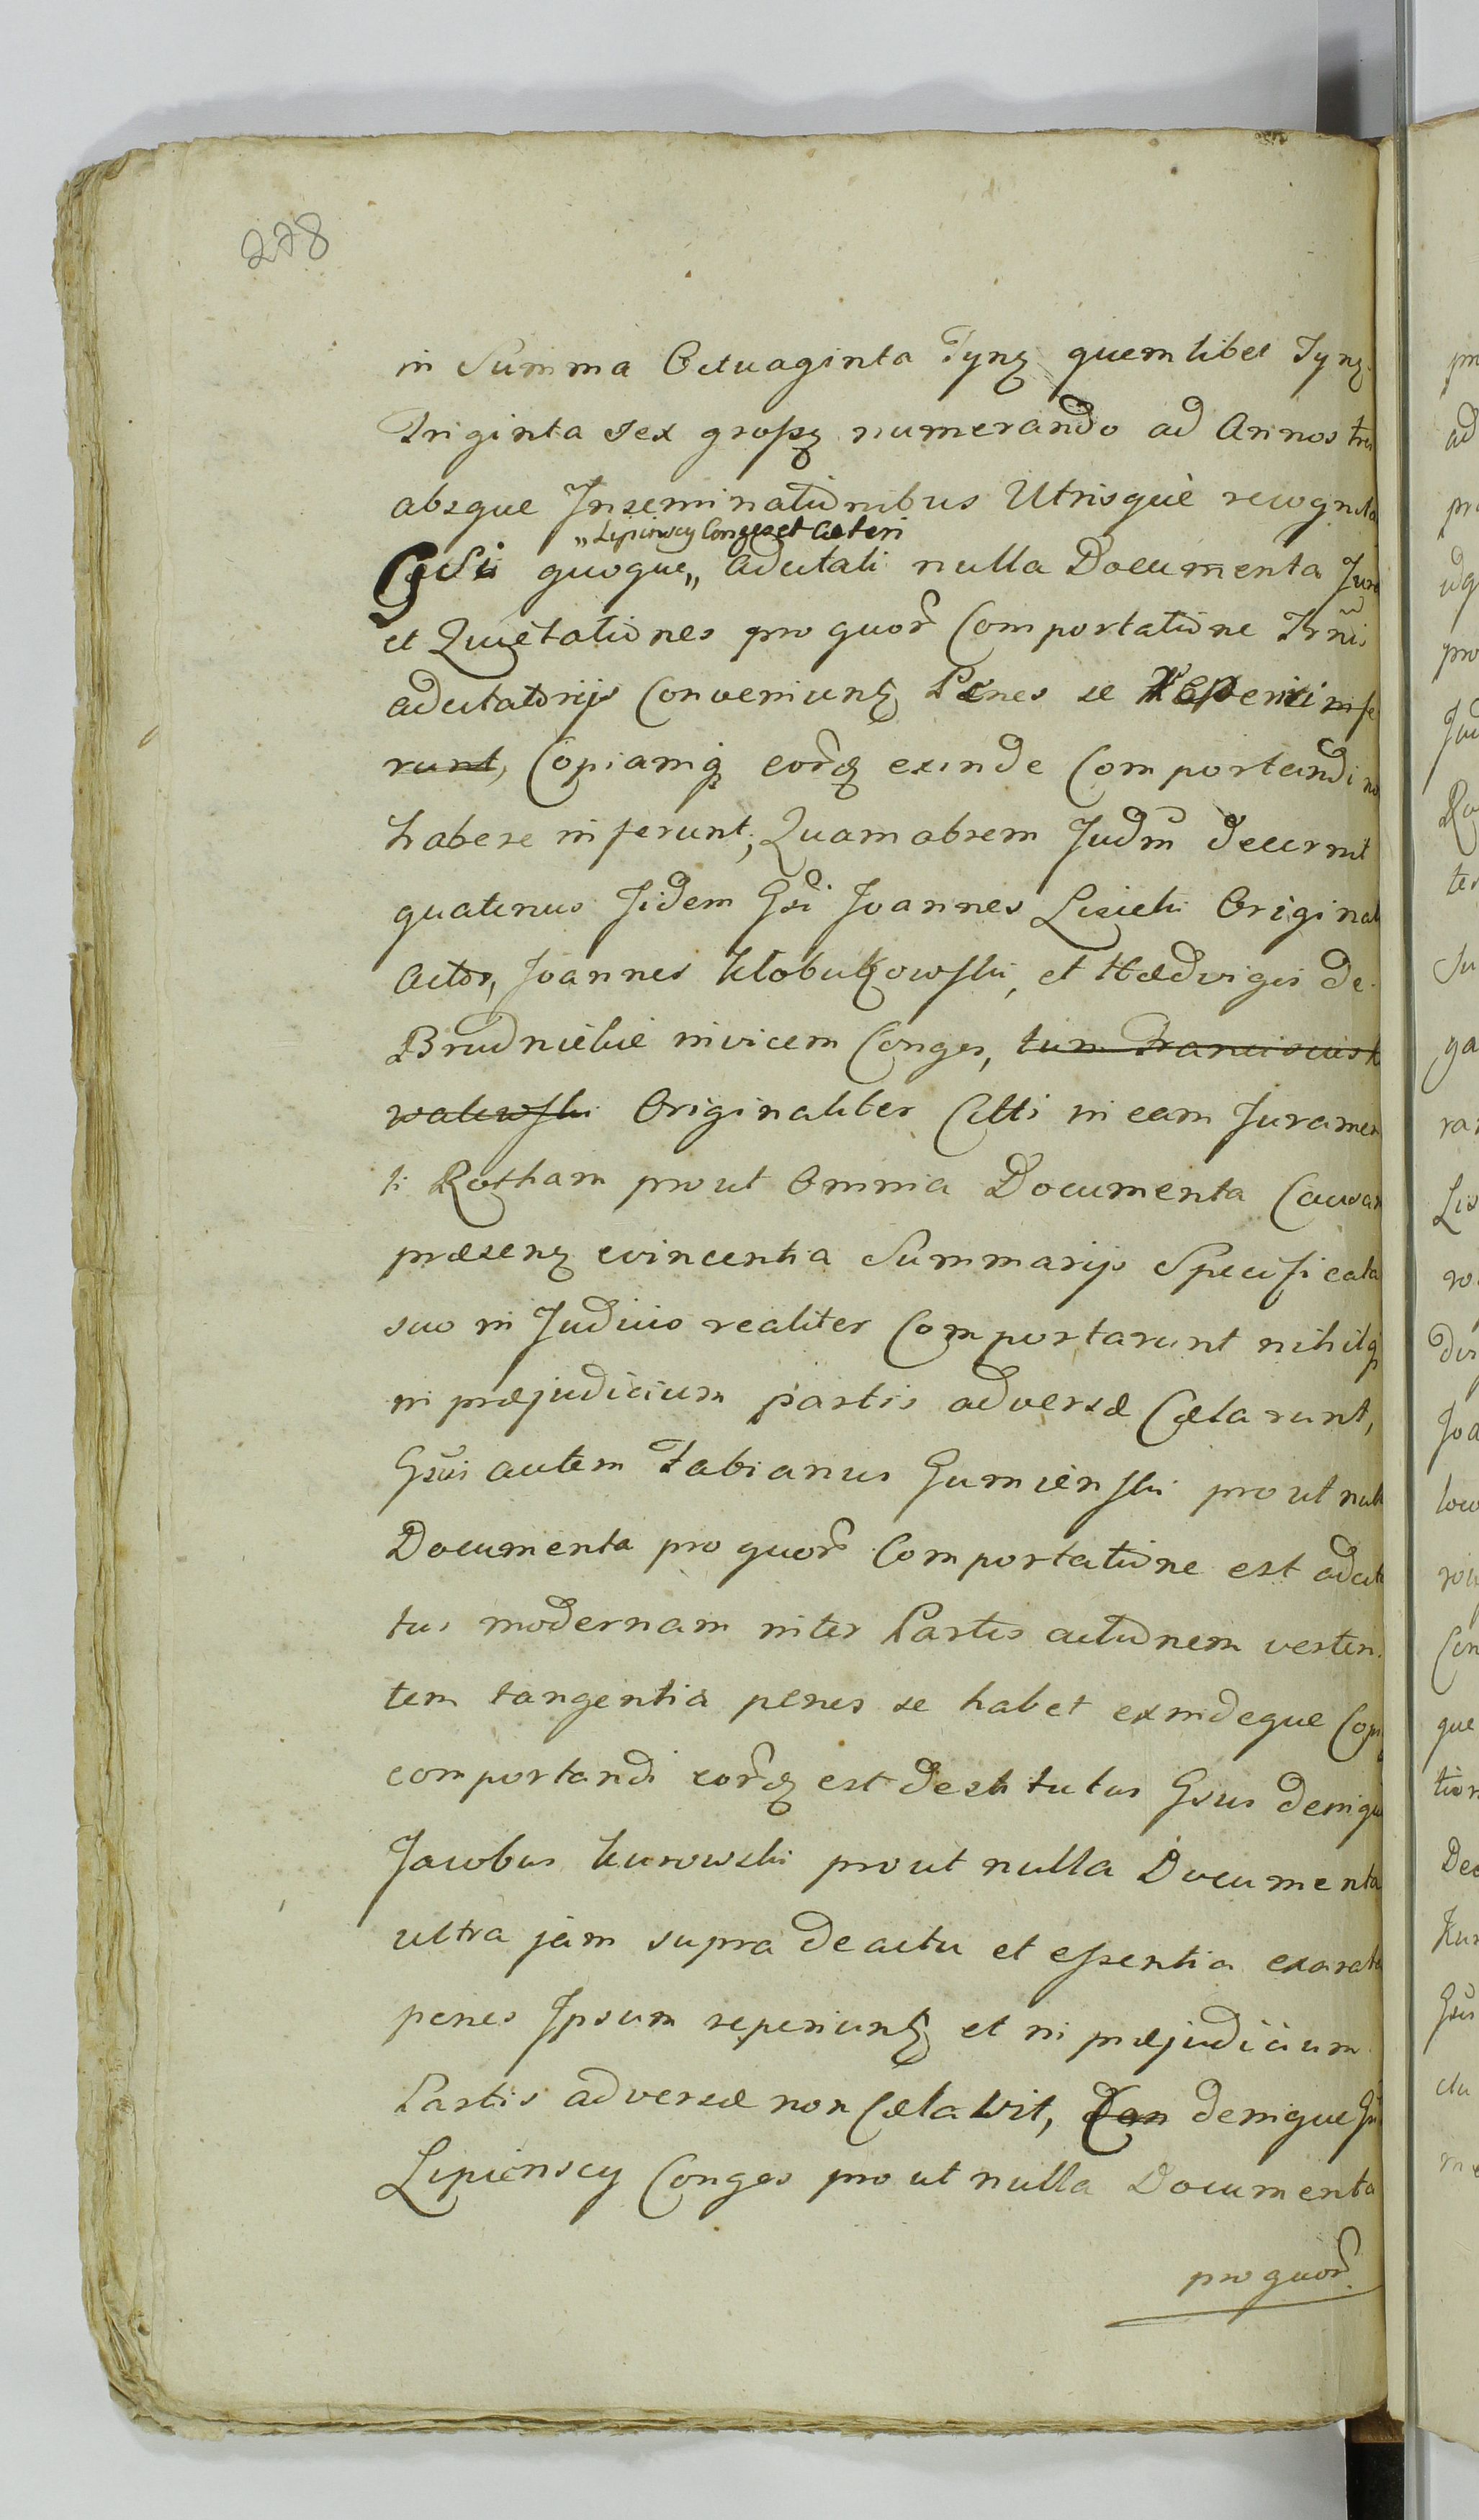 278
in Summa Octuaginta Tynȝ quemlibet Tynȝ
Triginta sex grossȝ numerando ad Annos tres
absque Inseminationibus Utrisquè recognita
„Lipinscy Conges et Caeteri
Gsi quoque„ adcitati nulla Documenta Jura
et Quietationes pro quor̃ Comportatione Trn̄is
adcitatorijs Conveniunȝ Penes se Reperiri infe
runt, Copiamq̨ eorȝ exinde Comportandi no
habere inferunt, Quamobrem Judm̃ decernit
quatenus Jidem Gsi Joannes Lisicki Original
Actor, Joannes Kłobukowski, et Hædvigis de
Brudnickie invicem Conges, tum Franciscus K
walewski Originaliter Citti in eam Juramen
ti Rotham prout Omnia Documenta Causam
præsenȝ evincentia Summarijs Specificata
suo in Judicio realiter Comportarunt nihilq̨
in præjudicium partis adversæ Cælarunt,
Gsus autem Fabianus Gumienski prout null
Documenta pro quor̃ Comportatione est adcita
tus modernam inter Partes actionem verten
tem tangentia penes se habet exindeque Copi
comportandi eorȝ est destitutus Gsus deniq̨
Jacobus Kurowski prout nulla Documenta
ultra jam supra de actu et essentia exarata
penes Ipsum reperiunȝ et in præjudicium
Partis adversæ non Cælavit, denique Gsi
Lipienscy Conges prout nulla Documenta
pro quor̃